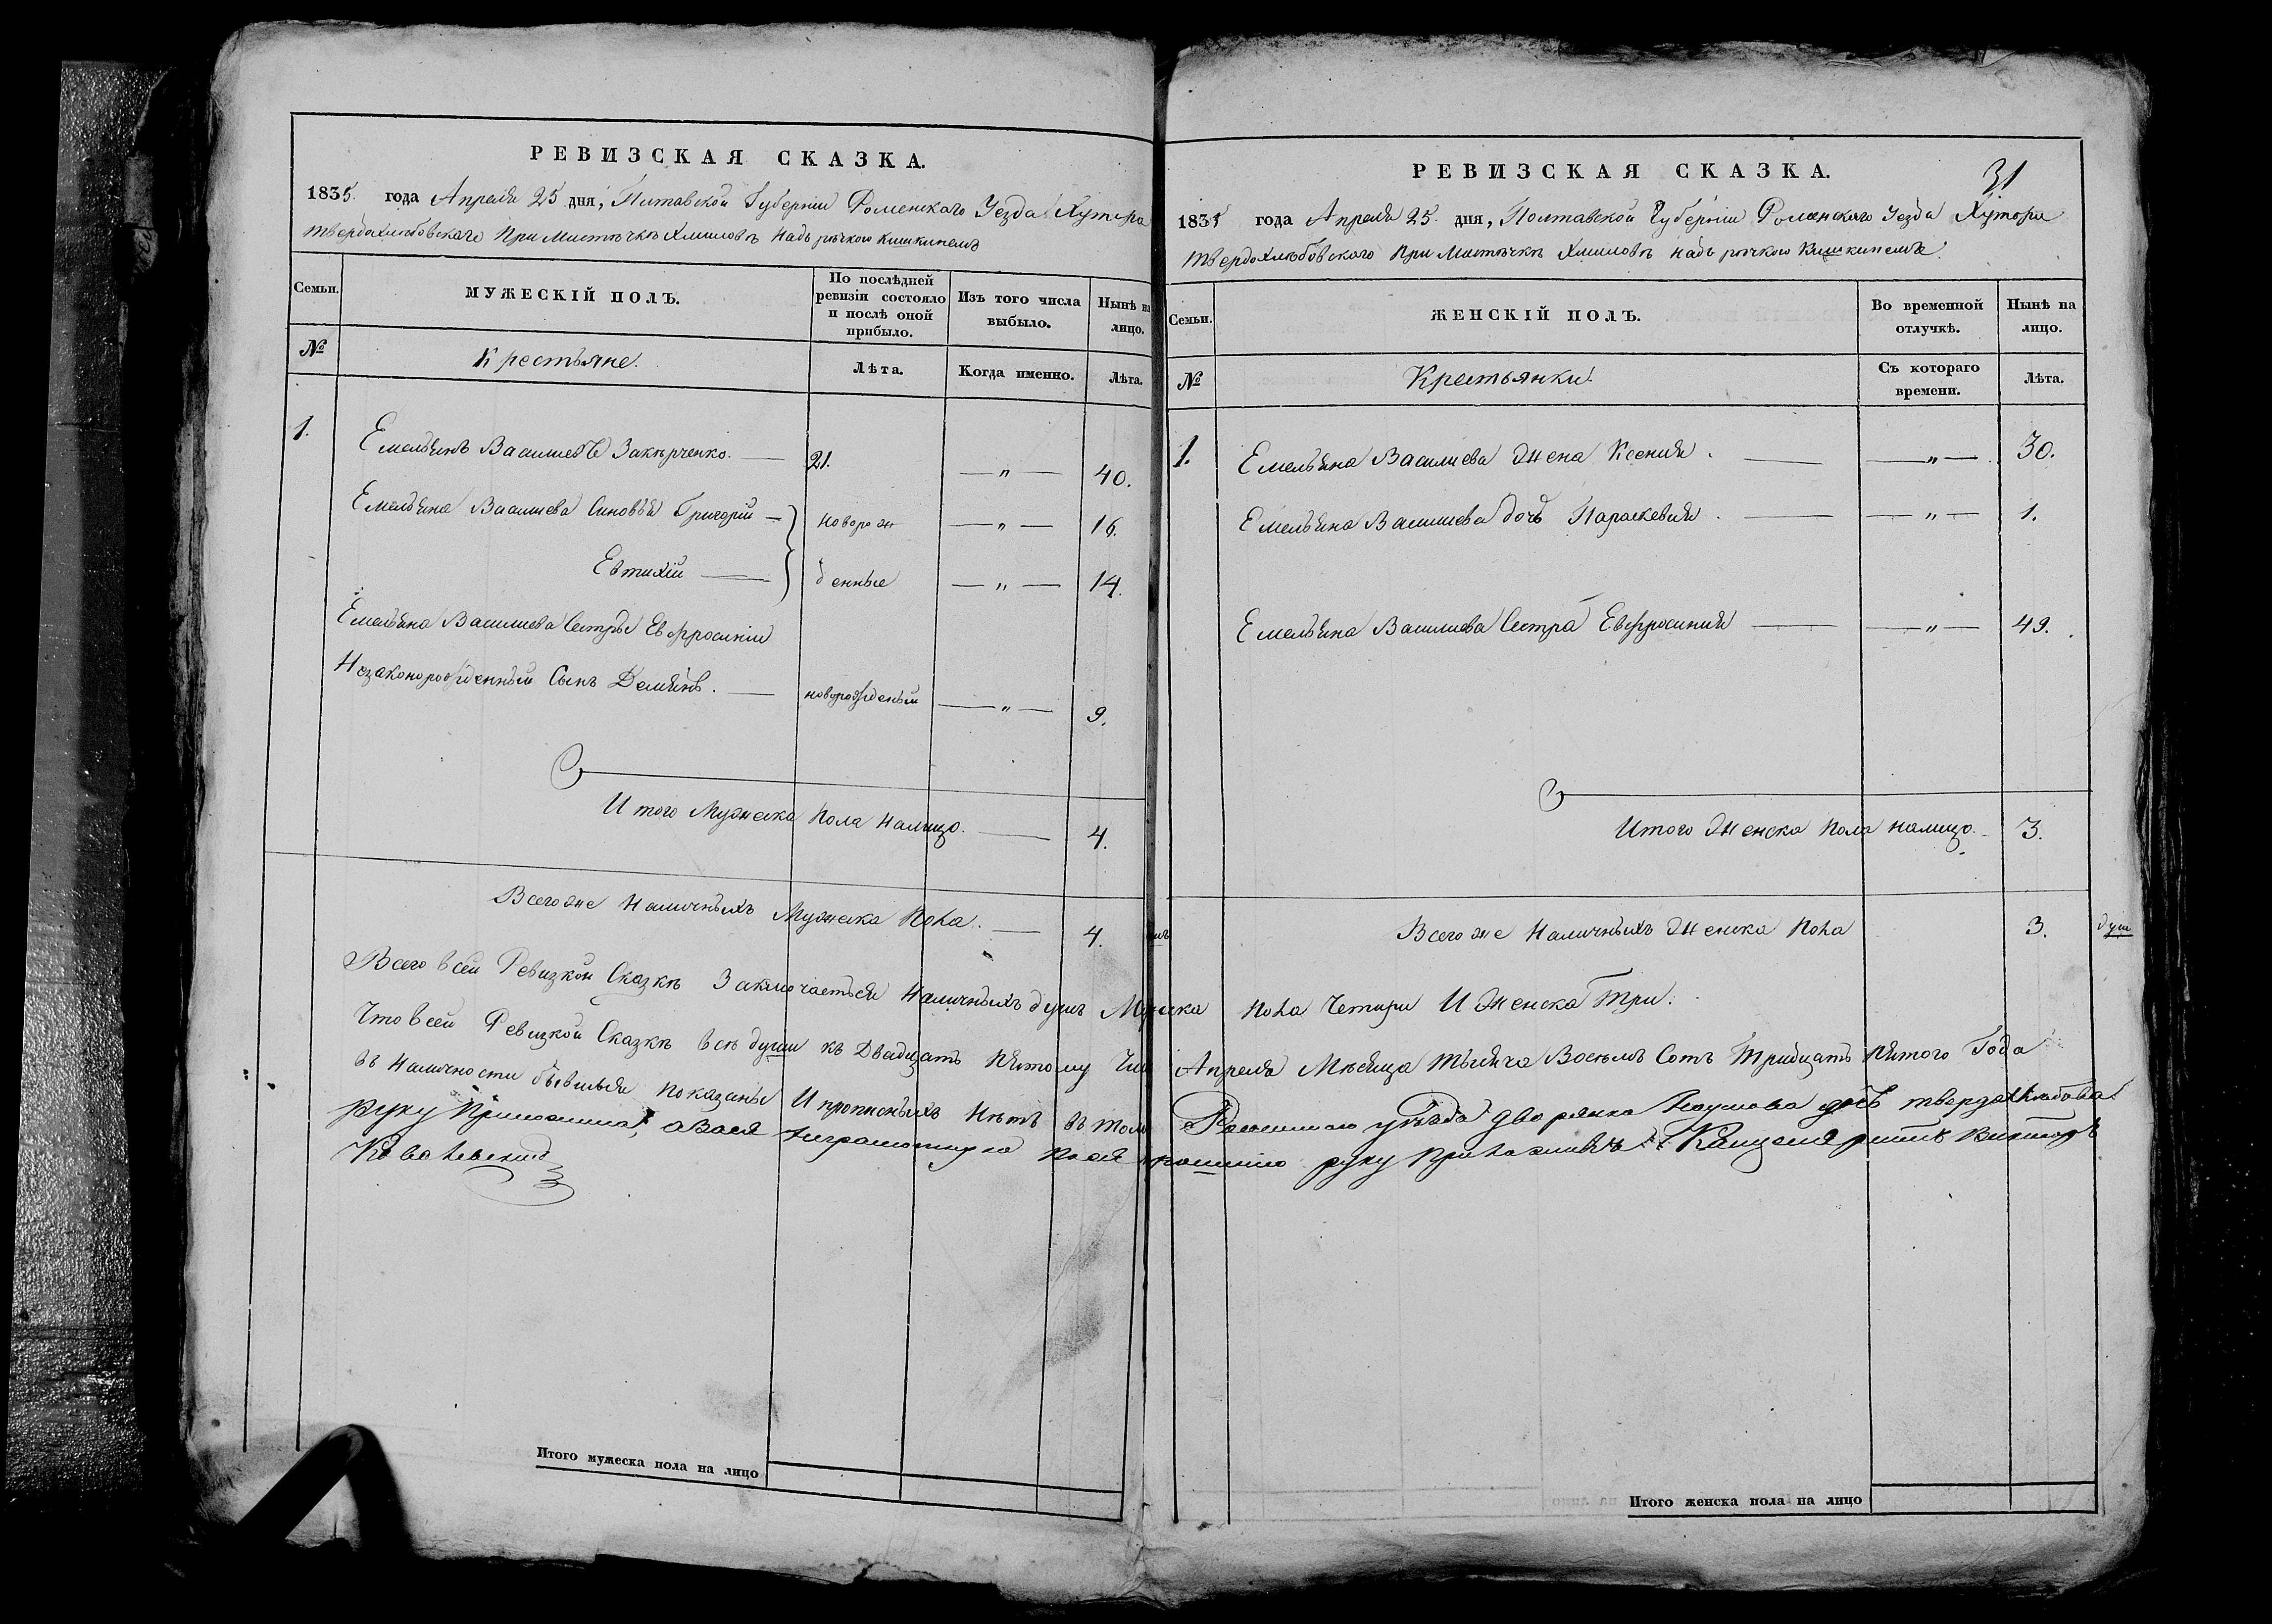 РЕВИЗСКАЯ СКАЗКА.
1835. года Апреля 25 дня, Полтавской Губернiи Роменскаго Уезда Хутора
твердохлебовскаго При Мистечкѣ Хмиловѣ надъ рѣчкою
Семьи.
МУЖЕСКIЙ ПОЛЪ.
По послѣдней ревизiи состояло и послѣ оной прибыло.
Изъ того числа выбыло.
Нынѣ на лицо.
№
Крестьяне.
Лѣта.
Когда именно.
Лѣта.
1. Емельянъ Василiевъ Закѣрченко. — 21. — „ — 40.
Емельяна Василиева Синовья Григорiй — новорож — „ — 16.
Евтихiй — денные — „ — 14.
Емельяна Василиева Сестры Евфросинiи
Незаконорожденный Сынъ Демянъ. — новорожденый — „ — 9.
Итого Мужеска пола налицо. — 4.
Всего же Наличныхъ Мужеска пола. — 4.
РЕВИЗСКАЯ СКАЗКА.
31
1835 года Апреля 25. дня, Полтавской Губернiи Роменскаго Уезда Хутора
твердохлебовскаго При Мистечкѣ Хмиловѣ надъ рѣчкою
Семьи.
ЖЕНСКIЙ ПОЛЪ.
Во временной отлучкѣ.
Нынѣ на лицо.
№
Крестьянки.
Съ котораго времени.
Лѣта.
1. Емельяна Василиева жена Ксения. — — „ — 30.
Емельяна Василиева дочь Параскевия. — — „ — 1.
Емельяна Василиева Сестра Евфросиния — — „ — 49.
Итого Женска пола налицо. 3.
Всего же Наличныхъ Женска пола 3. душ
Всего всей Ревизкой Сказкѣ Заключаеться Наличныхъ душъ Мужеска пола Четири И Женска Три.
Что всей Ревизкой Сказкѣ всѣ души къ Двадцать пятому Апреля Месяца Тысяча Восемъ Сотъ Тридцать пятого Года
въ наличности показаны И прописныхъ Нѣтъ въ томъ Роменского уѣзда дворянка дочь твердохлебова
руку приложила, а вместо неграмотную по ея прошению руку приложилъ Канцеляристъ
Ковалевский
Итого мужеска пола на лицо
Итого женска пола на лицо